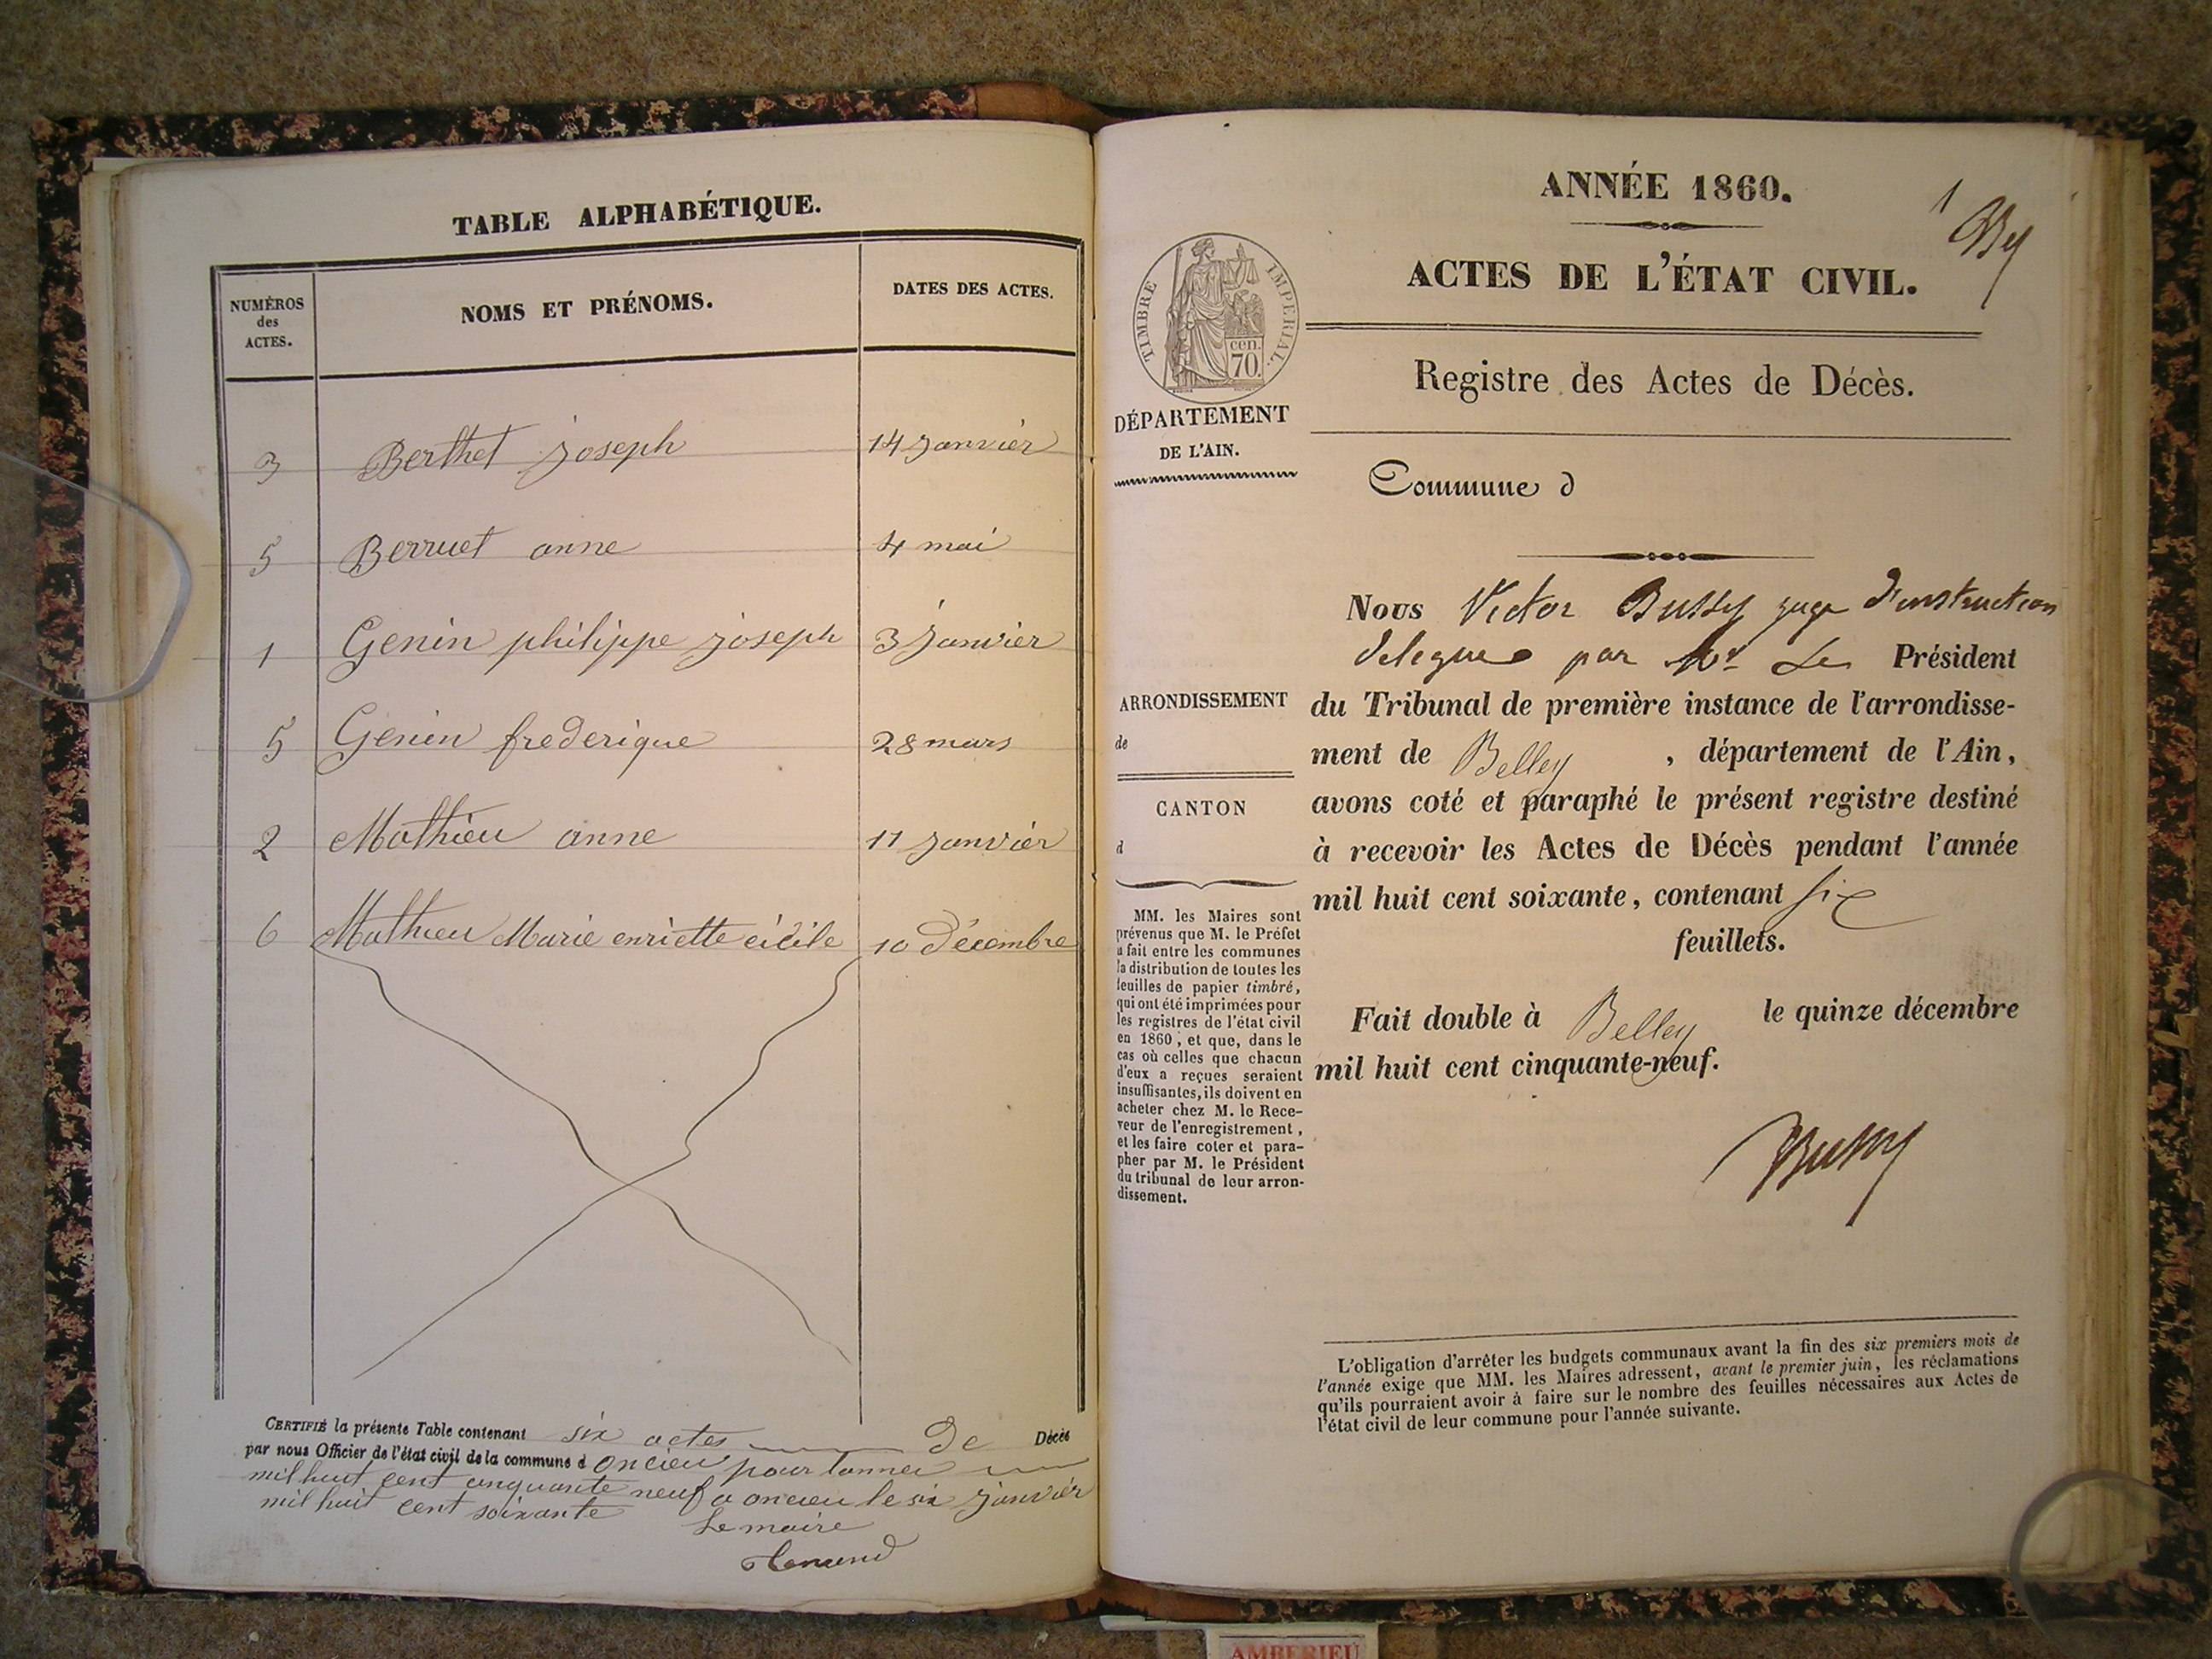 TABLE ALPHABÉTIQUE.
NUMÉROS des ACTES.
NOMS ET PRÉNOMS.
DATES DES ACTES.
3 Berthet joseph 14 Janvier
5 Berruet anne 4 mai
1 Genin philippe joseph 3 Janvier
5 Genin frederique 28 mars
2 Mathieu anne 11 Janvier
6 Mathieu Marie enriette cicile 10 Décembre
CERTIFIÉ la présente Table contenant six actes de Décès
par nous Officier de l'état civil de la commune d oncieu pour lannee
mil huit cent cinquante neuf a oncieu le six Janvier
mil huit cent soixante
Le maire
1
ANNÉE 1860.
ACTES DE L'ÉTAT CIVIL.
TIMBRE IMPÉRIAL.
cen.
70.
Registre des Actes de Décès.
DÉPARTEMENT
DE L'AIN.
Commune d
Nous Victor Bussy juge d'instruction
delegue par Mr Le Président
du Tribunal de première instance de l'arrondisse-
ment de Belley, département de l'Ain,
avons coté et paraphé le présent registre destiné
à recevoir les Actes de Décès pendant l'année
mil huit cent soixante, contenant six
feuillets.
Fait double à Belley le quinze décembre
mil huit cent cinquante-neuf.
Bussy
ARRONDISSEMENT
de
CANTON
d
MM. les Maires sont
prévenus que M. le Préfet
a fait entre les communes
la distribution de toutes les
feuilles de papier timbré,
qui ont été imprimées pour
les registres de l'état civil
en 1860, et que, dans le
cas où celles que chacun
d'eux a reçues seraient
insuffisantes, ils doivent en
acheter chez M. le Rece-
veur de l'enregistrement,
et les faire coter et para-
pher par M. le Président
du tribunal de leur arron-
dissement.
L'obligation d'arrêter les budgets communaux avant la fin des six premiers mois de
l'année exige que MM. les Maires adressent, avant le premier juin, les réclamations
qu'ils pourraient avoir à faire sur le nombre des feuilles nécessaires aux Actes de
l'état civil de leur commune pour l'année suivante.
AMBERIEU